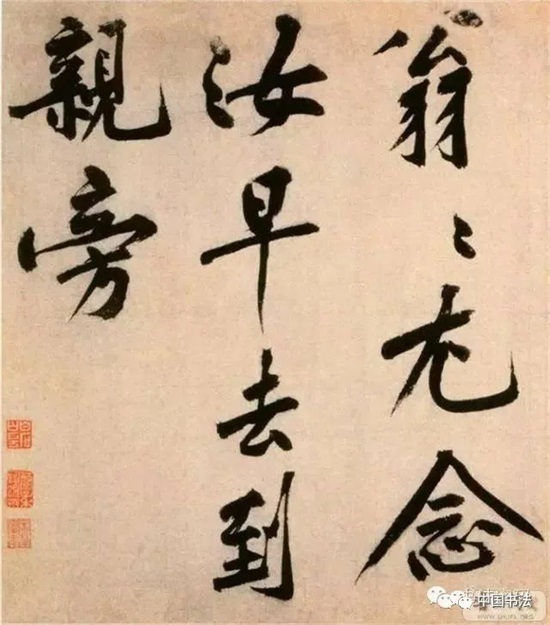 翁〻尤念
汝早去到
親旁
中国书法